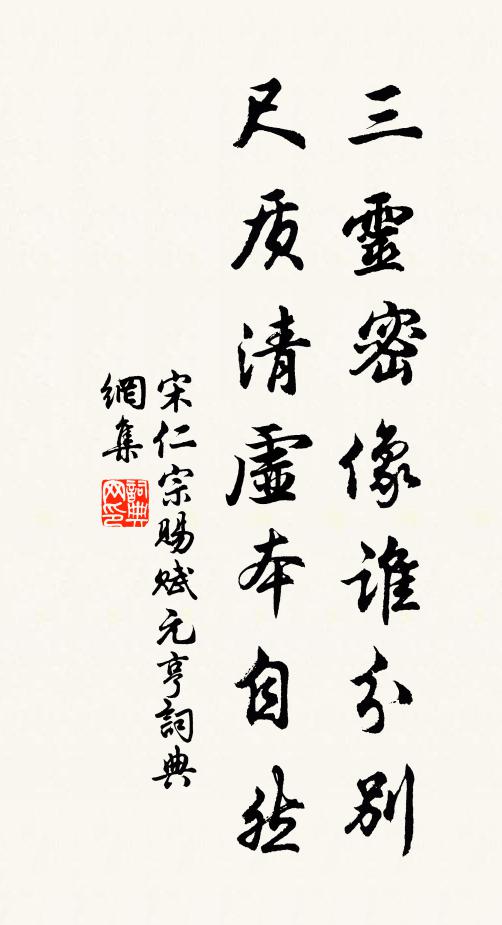 三靈密像誰分別
尺质清虛本自然
宋仁宗賜赋元亨詞典
網集
詞典
网印